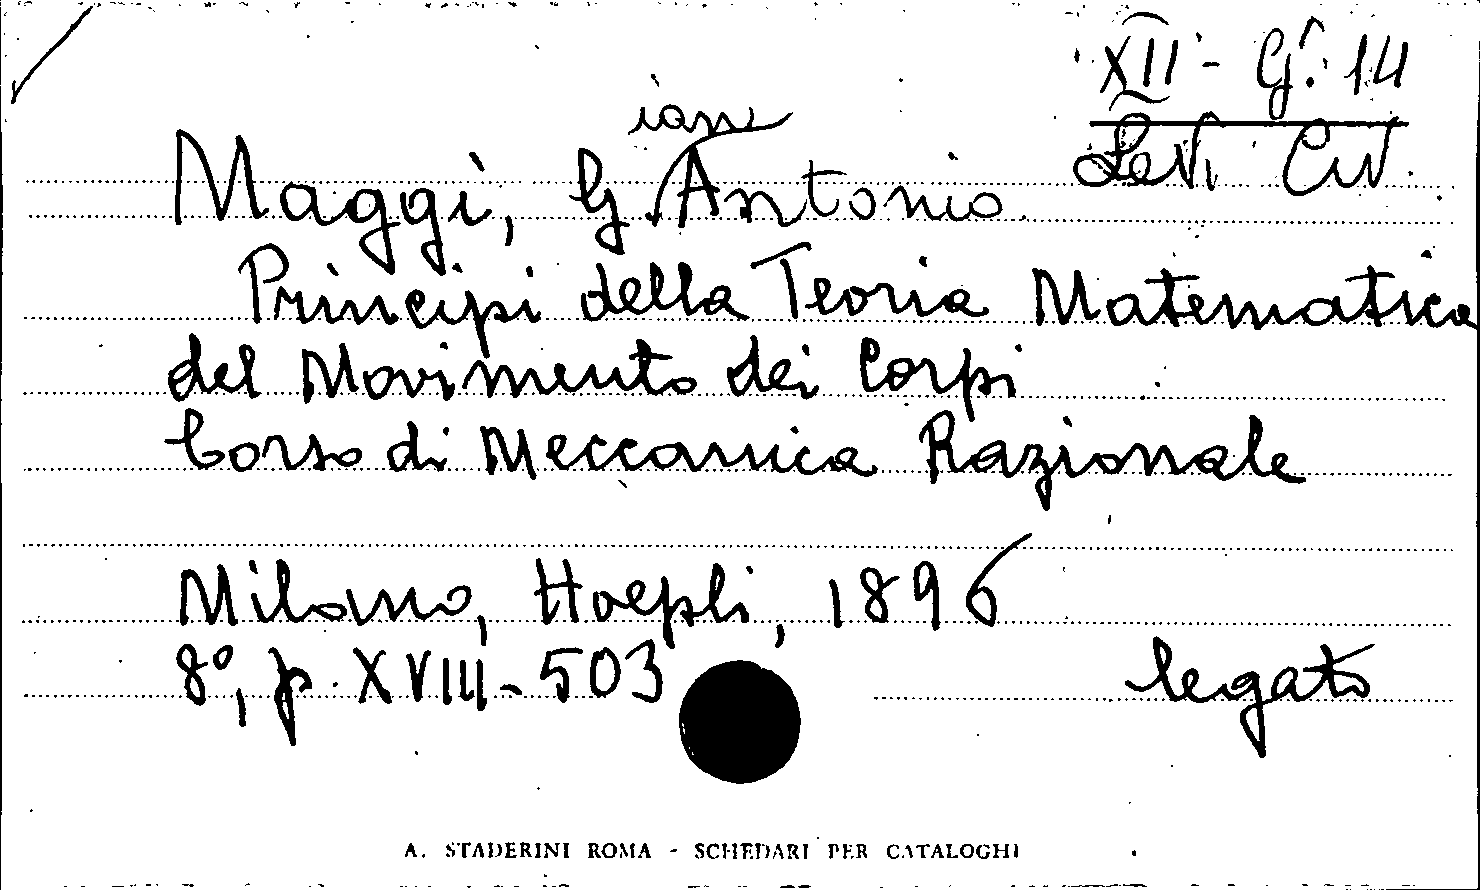 XII - G. 14
Levi Civ.
ian
Maggi, G. Antonio
Principi della Teoria Matematica
del Movimento dei Corpi
Corso di Meccanica Razionale
Milano, Hoepli, 1896
8°, p. XVIII-503
legato
A. STADERINI ROMA - SCHEDARI PER CATALOGHI